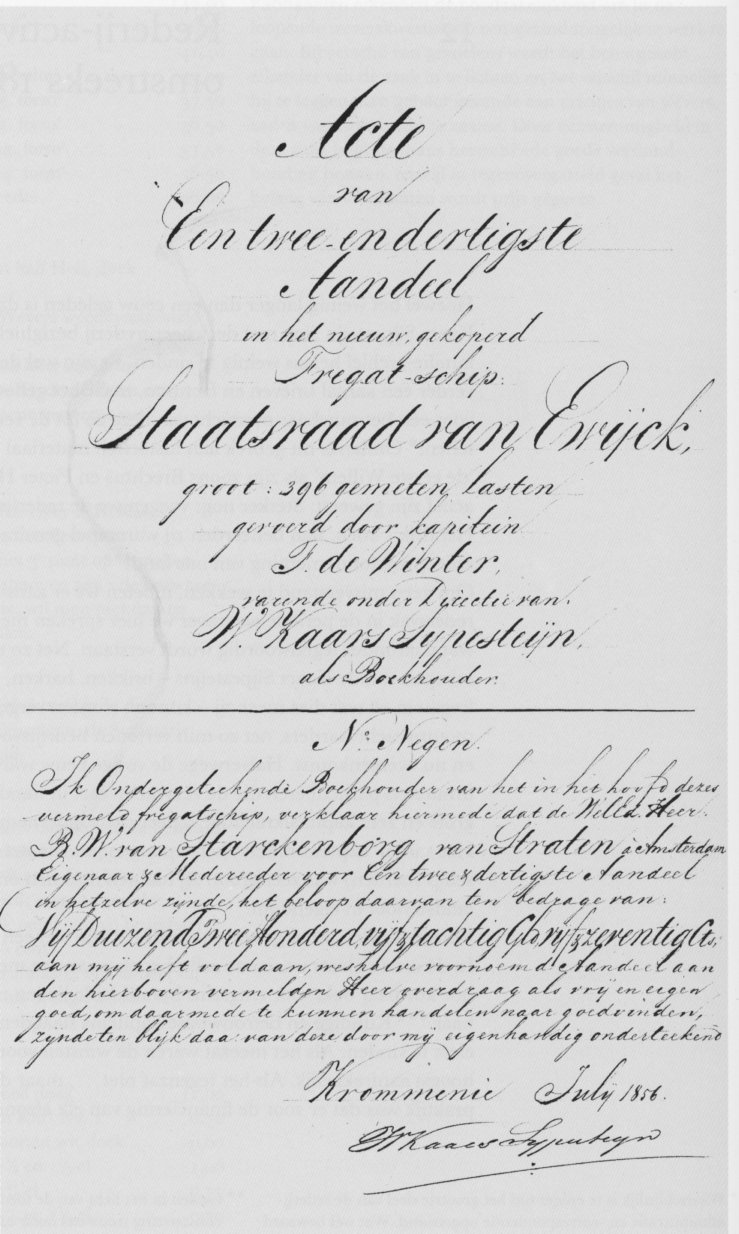 Acte
van
Een twee-en dertigste
Aandeel
in het nieuw, gekoperd
Fregat-schip:
Staatsraad van Ewijck,
groot: 396 gemeten lasten
gevoerd door kapitein
T. de Winter,
varende onder Directie van:
W. Kaars Sypesteijn,
als Boekhouder.
No. Negen.
Ik Ondergeteekende Boekhouder van het in het hoofd dezes
vermeld fregatschip, verklaar hiermede dat de WelEd. Heer.
B. W. van Starckenborg van Straten à Amsterdam
Eigenaar & Medereeder voor Een twee & dertigste Aandeel
in hetzelve zijnde, het beloop daarvan ten bedrage van:
Vijf Duizend Twee Honderd, vijf & tachtig Gl: vijf & zeventig Cts;
aan mij heeft voldaan, weshalve voornoemd Aandeel aan
den hierboven vermelden Heer overdraag als vrij en eigen
goed, om daarmede te kunnen handelen naar goedvinden,
zijnde ten blijk daar van deze door mij eigenhandig onderteekend
Krommenie July 1856.
W Kaars Sypesteyn